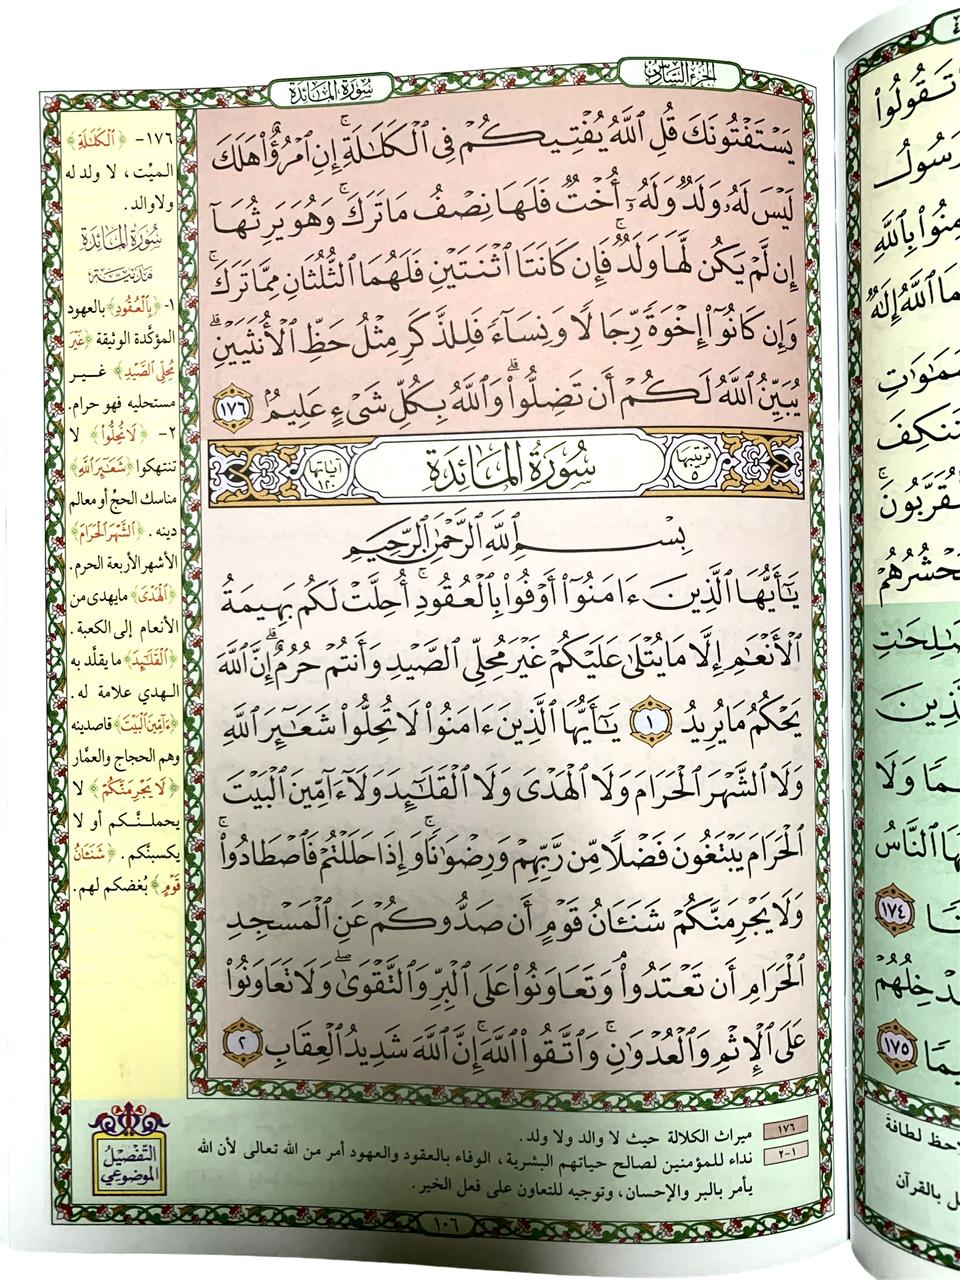 الجزء السادس
سورة المائدة
يَسْتَفْتُونَكَ قُلِ ٱللَّهُ يُفْتِيكُمْ فِى ٱلْكَلَـٰلَةِ ۚ إِنِ ٱمْرُؤٌا۟ هَلَكَ
لَيْسَ لَهُۥ وَلَدٌ وَلَهُۥٓ أُخْتٌ فَلَهَا نِصْفُ مَا تَرَكَ ۚ وَهُوَ يَرِثُهَآ
إِن لَّمْ يَكُن لَّهَا وَلَدٌ ۚ فَإِن كَانَتَا ٱثْنَتَيْنِ فَلَهُمَا ٱلثُّلُثَانِ مِمَّا تَرَكَ ۚ
وَإِن كَانُوٓا۟ إِخْوَةً رِّجَالًا وَنِسَآءً فَلِلذَّكَرِ مِثْلُ حَظِّ ٱلْأُنثَيَيْنِ ۗ
يُبَيِّنُ ٱللَّهُ لَكُمْ أَن تَضِلُّوا۟ ۗ وَٱللَّهُ بِكُلِّ شَىْءٍ عَلِيمٌۢ ١٧٦
ترتيبها ٥ سُورَةُ المَائِدَةِ آياتها ١٢٠
بِسْمِ ٱللَّهِ ٱلرَّحْمَـٰنِ ٱلرَّحِيمِ
يَـٰٓأَيُّهَا ٱلَّذِينَ ءَامَنُوٓا۟ أَوْفُوا۟ بِٱلْعُقُودِ ۚ أُحِلَّتْ لَكُم بَهِيمَةُ
ٱلْأَنْعَـٰمِ إِلَّا مَا يُتْلَىٰ عَلَيْكُمْ غَيْرَ مُحِلِّى ٱلصَّيْدِ وَأَنتُمْ حُرُمٌ ۗ إِنَّ ٱللَّهَ
يَحْكُمُ مَا يُرِيدُ ١ يَـٰٓأَيُّهَا ٱلَّذِينَ ءَامَنُوا۟ لَا تُحِلُّوا۟ شَعَـٰٓئِرَ ٱللَّهِ
وَلَا ٱلشَّهْرَ ٱلْحَرَامَ وَلَا ٱلْهَدْىَ وَلَا ٱلْقَلَـٰٓئِدَ وَلَآ ءَآمِّينَ ٱلْبَيْتَ
ٱلْحَرَامَ يَبْتَغُونَ فَضْلًا مِّن رَّبِّهِمْ وَرِضْوَٰنًا ۚ وَإِذَا حَلَلْتُمْ فَٱصْطَادُوا۟ ۚ
وَلَا يَجْرِمَنَّكُمْ شَنَـَٔانُ قَوْمٍ أَن صَدُّوكُمْ عَنِ ٱلْمَسْجِدِ
ٱلْحَرَامِ أَن تَعْتَدُوا۟ ۘ وَتَعَاوَنُوا۟ عَلَى ٱلْبِرِّ وَٱلتَّقْوَىٰ ۖ وَلَا تَعَاوَنُوا۟
عَلَى ٱلْإِثْمِ وَٱلْعُدْوَٰنِ ۚ وَٱتَّقُوا۟ ٱللَّهَ ۖ إِنَّ ٱللَّهَ شَدِيدُ ٱلْعِقَابِ ٢
١٧٦- ﴿ٱلْكَلَـٰلَةِ﴾
الميِّت، لا ولد له
ولا والد.
سُورَةُ المَائِدَة
مَدَنِيَّة
١- ﴿بِٱلْعُقُودِ﴾ بالعهود
المؤكَّدة الوثيقة ﴿غَيْرَ
مُحِلِّى ٱلصَّيْدِ﴾ غير
مستحليه فهو حرام.
٢- ﴿لَا تُحِلُّوا۟﴾ لا
تنتهكوا ﴿شَعَـٰٓئِرَ ٱللَّهِ﴾
مناسك الحجّ أو معالم
دينه. ﴿ٱلشَّهْرَ ٱلْحَرَامَ﴾
الأشهر الأربعة الحرم.
﴿ٱلْهَدْىَ﴾ ما يهدى من
الأنعام إلى الكعبة.
﴿ٱلْقَلَـٰٓئِدَ﴾ ما يقلَّد به
الهدي علامة له.
﴿ءَآمِّينَ ٱلْبَيْتَ﴾ قاصدينه
وهم الحجاج والعمَّار
﴿لَا يَجْرِمَنَّكُمْ﴾ لا
يحملنَّكم أو لا
يكسبنَّكم. ﴿شَنَـَٔانُ
قَوْمٍ﴾ بُغضكم لهم.
١٧٦ ميراث الكلالة حيث لا والد ولا ولد.
١-٢ نداء للمؤمنين لصالح حياتهم البشرية، الوفاء بالعقود والعهود أمر من الله تعالى لأن الله
يأمر بالبر والإحسان، وتوجيه للتعاون على فعل الخير.
التَّفْصِيلُ
الموضوعي
١٠٦
تَقُولُوا۟
رَسُولُ
بِٱللَّهِ
ٱللَّهُ إِلَـٰهٌ
وَلَا
ٱلنَّاسُ
١٧٤
١٧٥
لطافة
بالقرآن